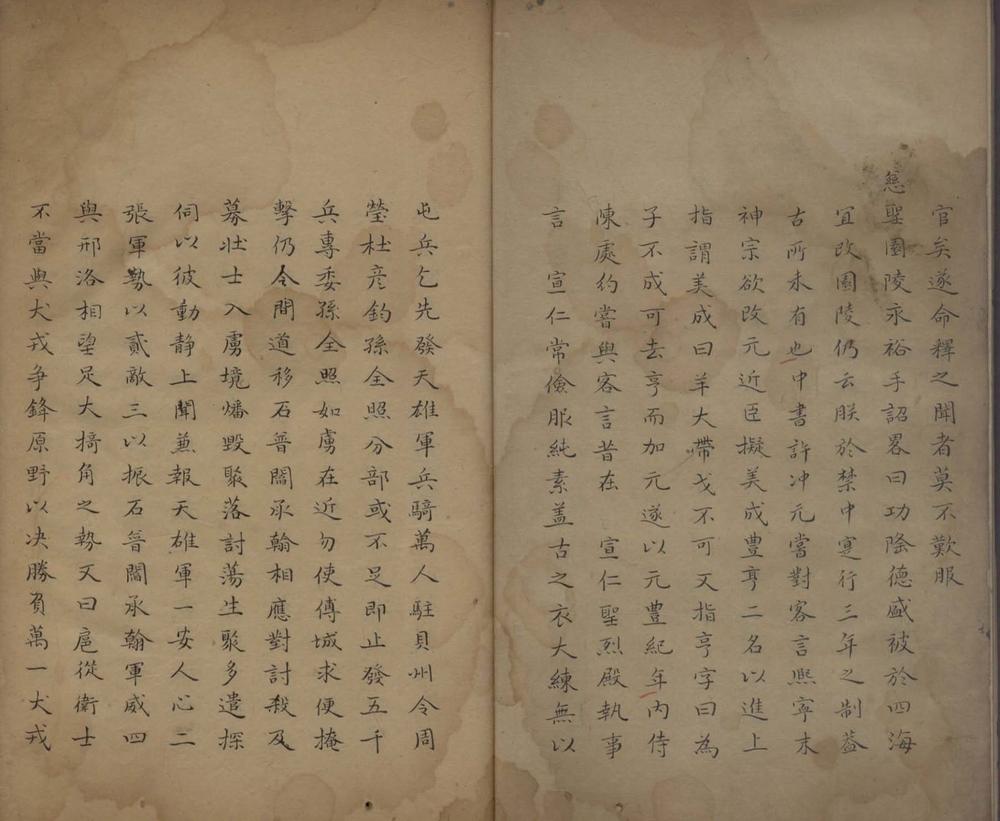 官矣遂命釋之聞者莫不歎服
慈聖園陵永裕手詔畧曰功隆德盛被於四海
宜改園陵仍云朕於禁中寔行三年之制蓋
古所未有也中書許冲元嘗對客言熙寧末
神宗欲改元近臣擬美成豊亨二名以進上
指謂美成曰羊大帶戈不可又指亨字曰為
子不成可去亨而加元遂以元豊紀年内侍
陳處約嘗與客言昔在　宣仁聖烈殿執事
言　宣仁常儉服純素盖古之衣大練無以
屯兵乞先發天雄軍兵騎萬人駐貝州令周
瑩杜彦鈞孫全照分部或不足即止發五千
兵專委孫全照如虜在近勿使傅城求便掩
擊仍令間道移石普閻承翰相應對討殺及
募壮士入虜境燔毀聚落討蕩生聚多遣探
伺以彼動靜上聞兼報天雄軍一安人心二
張軍勢以貳敵三以振石普閻承翰軍威四
與邢洛相望足大掎角之勢又曰扈從衛士
不當與犬戎争鋒原野以决勝負萬一犬戎